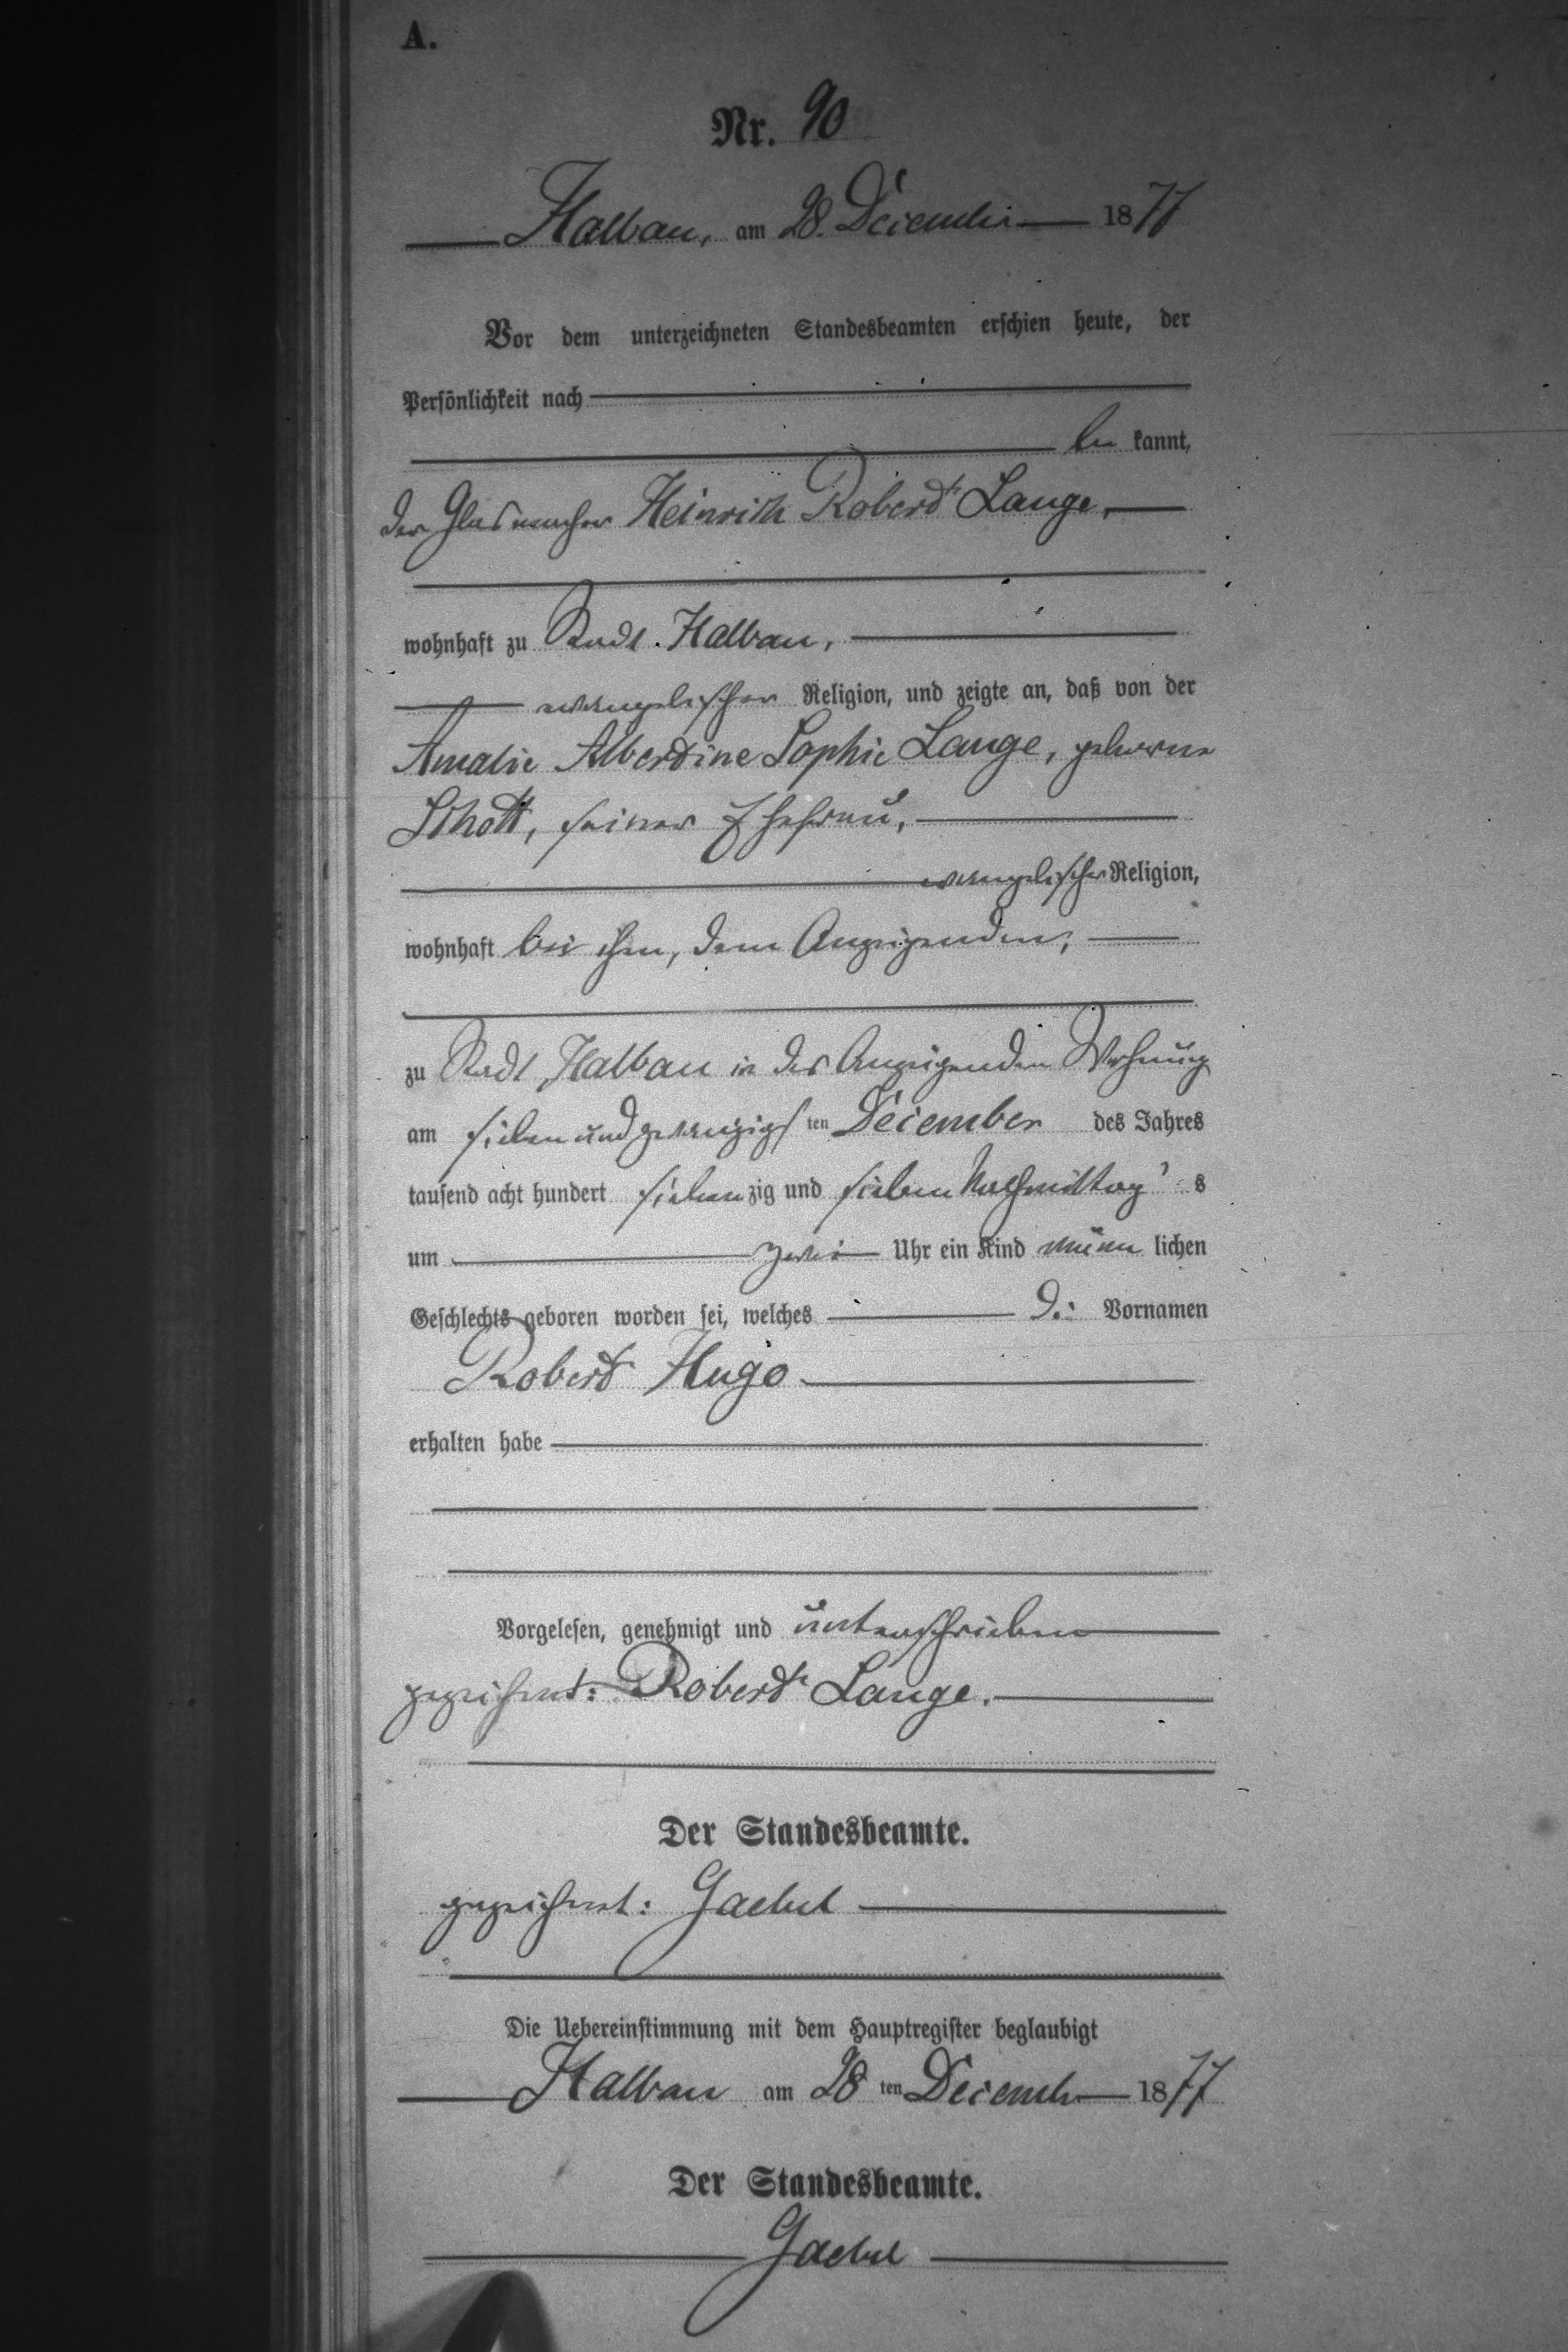 A.
Nr. 90
Halbau, am 28. December 1877
Vor dem unterzeichneten Standesbeamten erschien heute, der
Persönlichkeit nach
be kannt,
der Glasmacher Heinrich Robert Lange,
wohnhaft zu Halbau,
evangelischer Religion, und zeigte an, daß von der
Amalie Albertine Sophie Lange, geborne
Schott, seiner Ehefrau,
evangelischer Religion,
wohnhaft bei ihm, dem Anzeigenden,
zu Halbau in des Anzeigenden Wohnung
am sieben und zwanzigs ten December des Jahres
tausend acht hundert sieben zig und sieben Nachmittag s
um zwei Uhr ein Kind männ lichen
Geschlechts geboren worden sei, welches die Vornamen
Robert Hugo
erhalten habe
Vorgelesen, genehmigt und unterschrieben
gezeichnet: Robert Lange.
Der Standesbeamte.
gezeichnet: Gaebel
Die Uebereinstimmung mit dem Hauptregister beglaubigt
Halbau am 28 ten Decemb 1877
Der Standesbeamte.
Gaebel